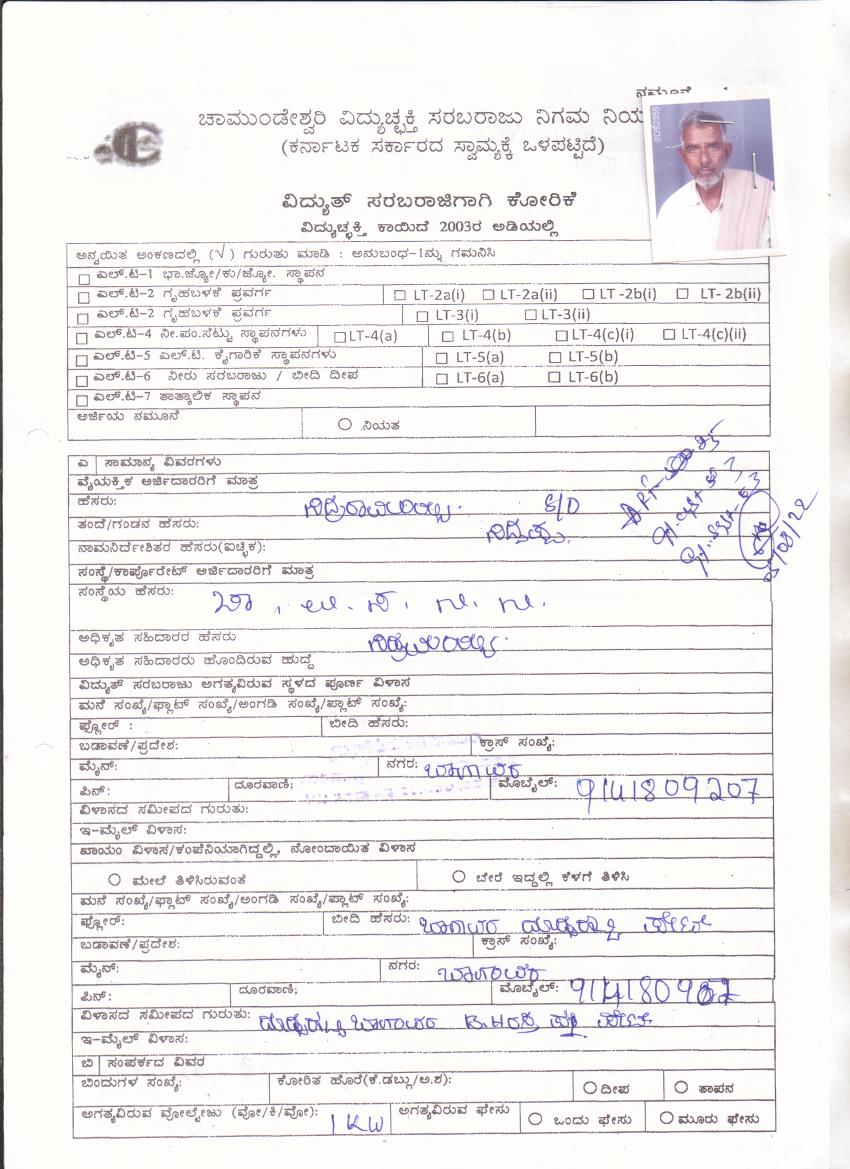 ನಮೂನೆ
ಚಾಮುಂಡೇಶ್ವರಿ ವಿದ್ಯುಚ್ಛಕ್ತಿ ಸರಬರಾಜು ನಿಗಮ ನಿಯ
(ಕರ್ನಾಟಕ ಸರ್ಕಾರದ ಸ್ವಾಮ್ಯಕ್ಕೆ ಒಳಪಟ್ಟಿದೆ)
ವಿದ್ಯುತ್ ಸರಬರಾಜಿಗಾಗಿ ಕೋರಿಕೆ
ವಿದ್ಯುಚ್ಛಕ್ತಿ ಕಾಯಿದೆ 2003ರ ಅಡಿಯಲ್ಲಿ
ಅನ್ವಯಿತ ಅಂಕಣದಲ್ಲಿ (√) ಗುರುತು ಮಾಡಿ : ಅನುಬಂಧ-1ನ್ನು ಗಮನಿಸಿ
ಎಲ್.ಟಿ-1 ಭಾ.ಜ್ಯೋ/ಕು/ಜ್ಯೋ. ಸ್ಥಾಪನ
ಎಲ್.ಟಿ-2 ಗೃಹಬಳಕೆ ಪ್ರವರ್ಗ LT-2a(i) LT-2a(ii) LT -2b(i) LT- 2b(ii)
ಎಲ್.ಟಿ-2 ಗೃಹಬಳಕೆ ಪ್ರವರ್ಗ LT-3(i) LT-3(ii)
ಎಲ್.ಟಿ-4 ನೀ.ಪಂ.ಸೆಟ್ಟು ಸ್ಥಾಪನಗಳು LT-4(a) LT-4(b) LT-4(c)(i) LT-4(c)(ii)
ಎಲ್.ಟಿ-5 ಎಲ್.ಟಿ. ಕೈಗಾರಿಕೆ ಸ್ಥಾಪನಗಳು LT-5(a) LT-5(b)
ಎಲ್.ಟಿ-6 ನೀರು ಸರಬರಾಜು / ಬೀದಿ ದೀಪ LT-6(a) LT-6(b)
ಎಲ್.ಟಿ-7 ತಾತ್ಕಾಲಿಕ ಸ್ಥಾಪನ
ಅರ್ಜಿಯ ನಮೂನೆ ನಿಯತ
ಎ ಸಾಮಾನ್ಯ ವಿವರಗಳು
ವೈಯಕ್ತಿಕ ಅರ್ಜಿದಾರರಿಗೆ ಮಾತ್ರ
ಹೆಸರು: S/O
ತಂದೆ/ಗಂಡನ ಹೆಸರು:
ನಾಮನಿರ್ದೇಶಿತರ ಹೆಸರು(ಐಚ್ಛಿಕ): 05/08/22
ಸಂಸ್ಥೆ/ಕಾರ್ಪೊರೇಟ್ ಅರ್ಜಿದಾರರಿಗೆ ಮಾತ್ರ
ಸಂಸ್ಥೆಯ ಹೆಸರು:
ಅಧಿಕೃತ ಸಹಿದಾರರ ಹೆಸರು
ಅಧಿಕೃತ ಸಹಿದಾರರು ಹೊಂದಿರುವ ಹುದ್ದೆ
ವಿದ್ಯುತ್ ಸರಬರಾಜು ಅಗತ್ಯವಿರುವ ಸ್ಥಳದ ಪೂರ್ಣ ವಿಳಾಸ
ಮನೆ ಸಂಖ್ಯೆ/ಫ್ಲಾಟ್ ಸಂಖ್ಯೆ/ಅಂಗಡಿ ಸಂಖ್ಯೆ/ಪ್ಲಾಟ್ ಸಂಖ್ಯೆ:
ಫ್ಲೋರ್ : ಬೀದಿ ಹೆಸರು:
ಬಡಾವಣೆ/ಪ್ರದೇಶ: ಕ್ರಾಸ್ ಸಂಖ್ಯೆ:
ಮೈನ್: ನಗರ:
ಪಿನ್: ದೂರವಾಣಿ; ಮೊಬೈಲ್: 9141809207
ವಿಳಾಸದ ಸಮೀಪದ ಗುರುತು:
ಇ-ಮೈಲ್ ವಿಳಾಸ:
ಖಾಯಂ ವಿಳಾಸ/ಕಂಪೆನಿಯಾಗಿದ್ದಲ್ಲಿ, ನೋಂದಾಯಿತ ವಿಳಾಸ
ಮೇಲೆ ತಿಳಿಸಿರುವಂತೆ ಬೇರೆ ಇದ್ದಲ್ಲಿ ಕೆಳಗೆ ತಿಳಿಸಿ
ಮನೆ ಸಂಖ್ಯೆ/ಫ್ಲಾಟ್ ಸಂಖ್ಯೆ/ಅಂಗಡಿ ಸಂಖ್ಯೆ/ಪ್ಲಾಟ್ ಸಂಖ್ಯೆ:
ಫ್ಲೋರ್: ಬೀದಿ ಹೆಸರು:
ಬಡಾವಣೆ/ಪ್ರದೇಶ: ಕ್ರಾಸ್ ಸಂಖ್ಯೆ:
ಮೈನ್: ನಗರ:
ಪಿನ್: ದೂರವಾಣಿ; ಮೊಬೈಲ್:
ವಿಳಾಸದ ಸಮೀಪದ ಗುರುತು:
ಇ-ಮೈಲ್ ವಿಳಾಸ:
ಬಿ ಸಂಪರ್ಕದ ವಿವರ
ಬಿಂದುಗಳ ಸಂಖ್ಯೆ: ಕೋರಿತ ಹೊರೆ(ಕೆ.ಡಬ್ಲು/ಅ.ಶ): ದೀಪ ತಾಪನ
ಅಗತ್ಯವಿರುವ ವೋಲ್ಟೇಜು (ವೋ/ಕಿ/ವೋ): 1 KW ಅಗತ್ಯವಿರುವ ಫೇಸು ಒಂದು ಫೇಸು ಮೂರು ಫೇಸು